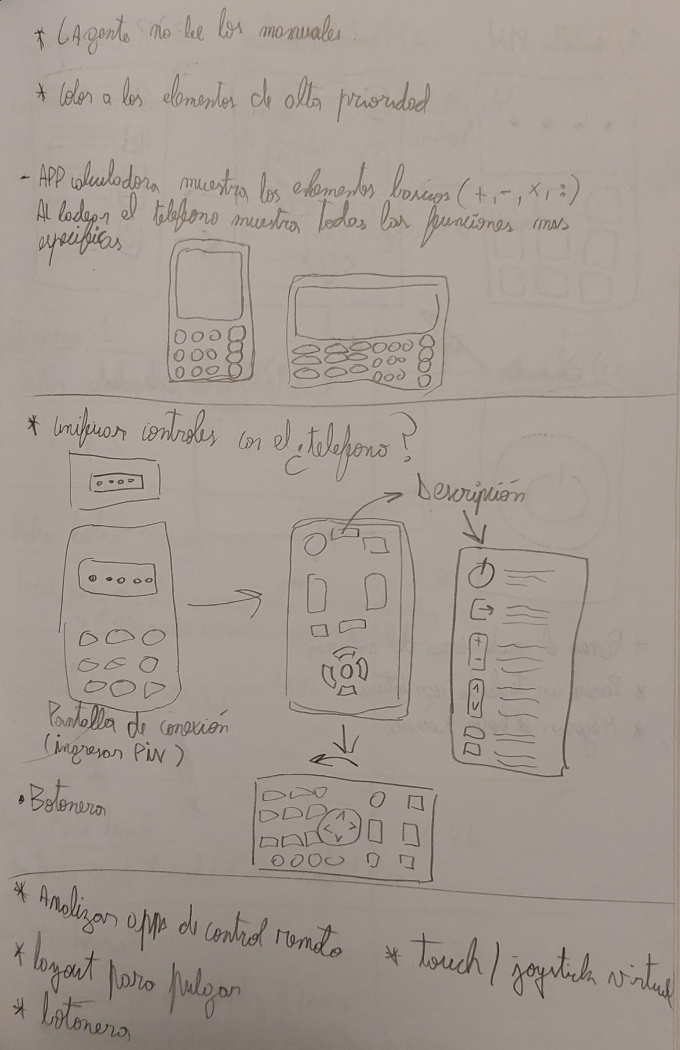 * LAgente no lee los manuales.
* Color a los elementos de alta prioridad
- APP calculadora muestra los elementos basicos (+, -, x, :)
Al ladear el telefono muestra todas las funciones mas
especificas
* Unificar controles con el ¿telefono?
Descripción
Pantalla de conexión
(ingresar PIN)
• Botonera
* Analizar apps de control remoto
* layout para pulgar
* touch / joystick virtual
* botonera